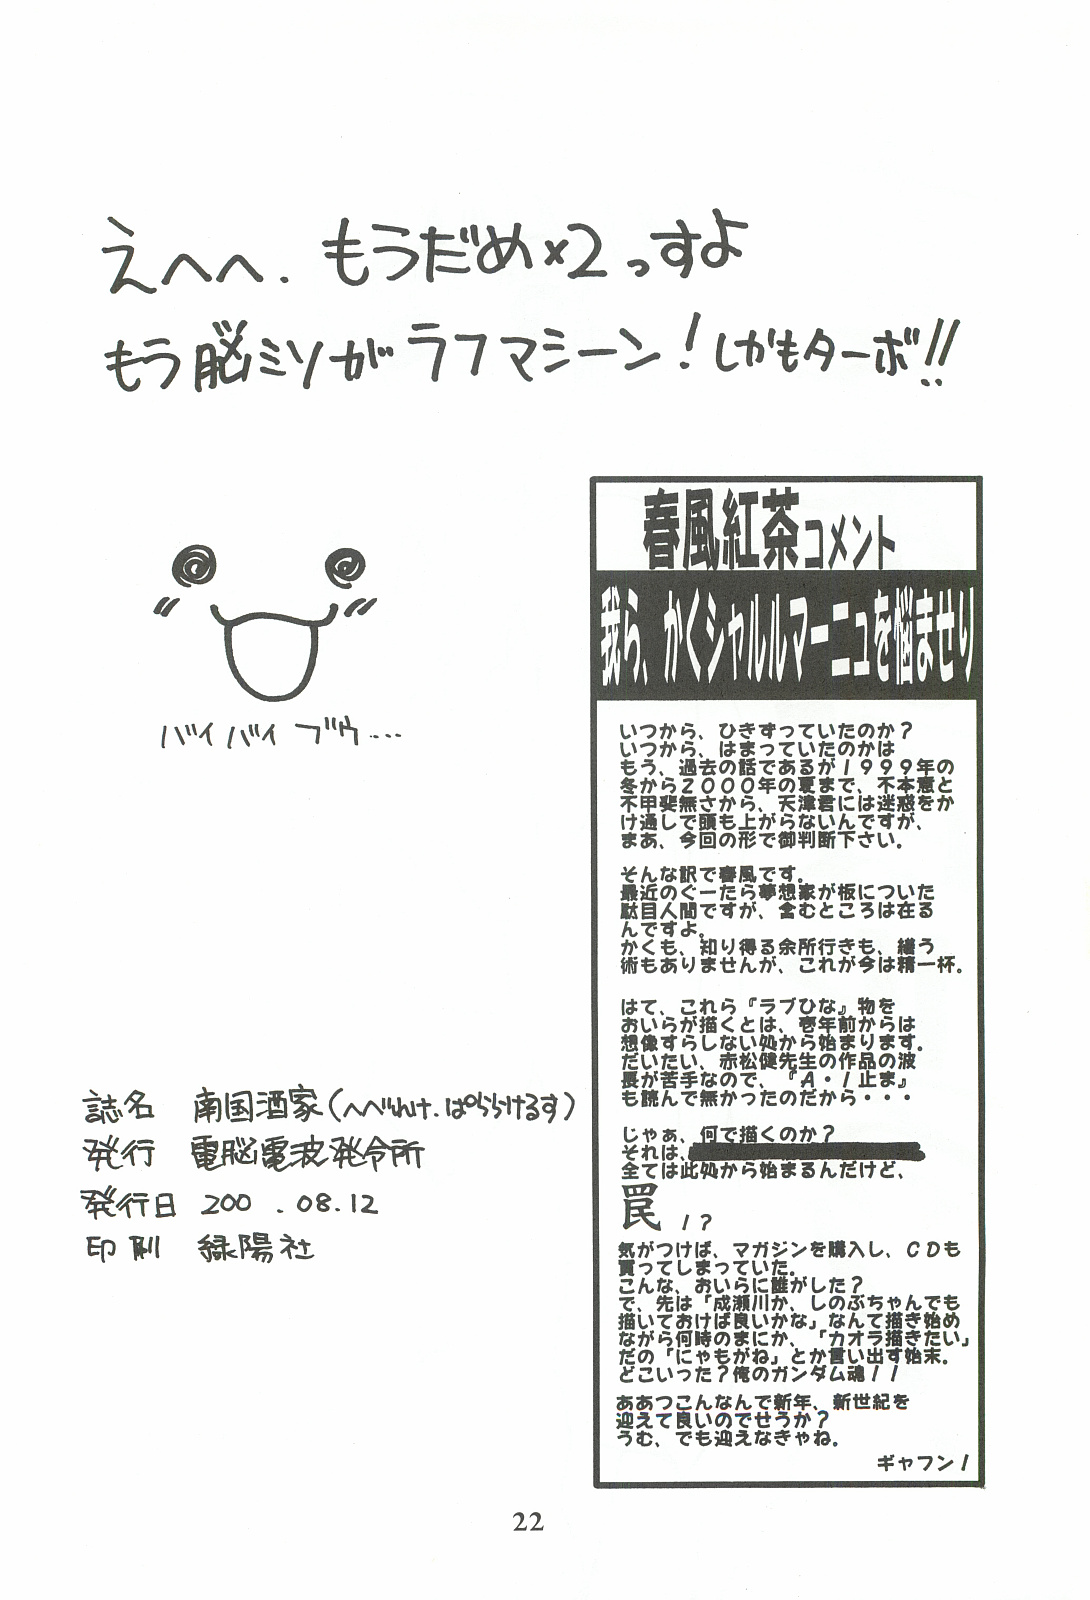 えへへ. もうだめ×2っすよ
もう脳ミソがラフマシーン！しかもターボ!!
バイバイ ブゥ・・・・
春風紅茶コメント
我ら、かくシャルルマーニュを悩ませり
いつから、ひきずっていたのか？
いつから、はまっていたのかは
もう、過去の話であるが１９９９年の
冬から２０００年の夏まで、不本意と
不甲斐無さから、天津君には迷惑をか
け通しで頭も上がらないんですが、
まあ、今回の形で御判断下さい。
そんな訳で春風です。
最近のぐーたら夢想家が板についた
駄目人間ですが、含むところは在る
んですよ。
かくも、知り得る余所行きも、繕う
術もありませんが、これが今は精一杯。
はて、これら『ラブひな』物を
おいらが描くとは、壱年前からは
想像すらしない処から始まります。
だいたい、赤松健先生の作品の波
長が苦手なので、『Ａ・Ｉ止ま』
も読んで無かったのだから・・・
じゃぁ、何で描くのか？
それは、
全ては此処から始まるんだけど、
罠！？
気がつけば、マガジンを購入し、ＣＤも
買ってしまっていた。
こんな、おいらに誰がした？
で、先は「成瀬川か、しのぶちゃんでも
描いておけば良いかな」なんて描き始め
ながら何時のまにか、「カオラ描きたい」
だの「にゃもがね」とか言い出す始末。
どこいった？俺のガンダム魂！！
ああつこんなんで新年、新世紀を
迎えて良いのでせうか？
うむ、でも迎えなきゃね。
ギャフン！
誌名 南国酒家(へべれけ.ぱららけるす)
発行 電脳電波発令所
発行日 200 .08.12
印刷 緑陽社
22